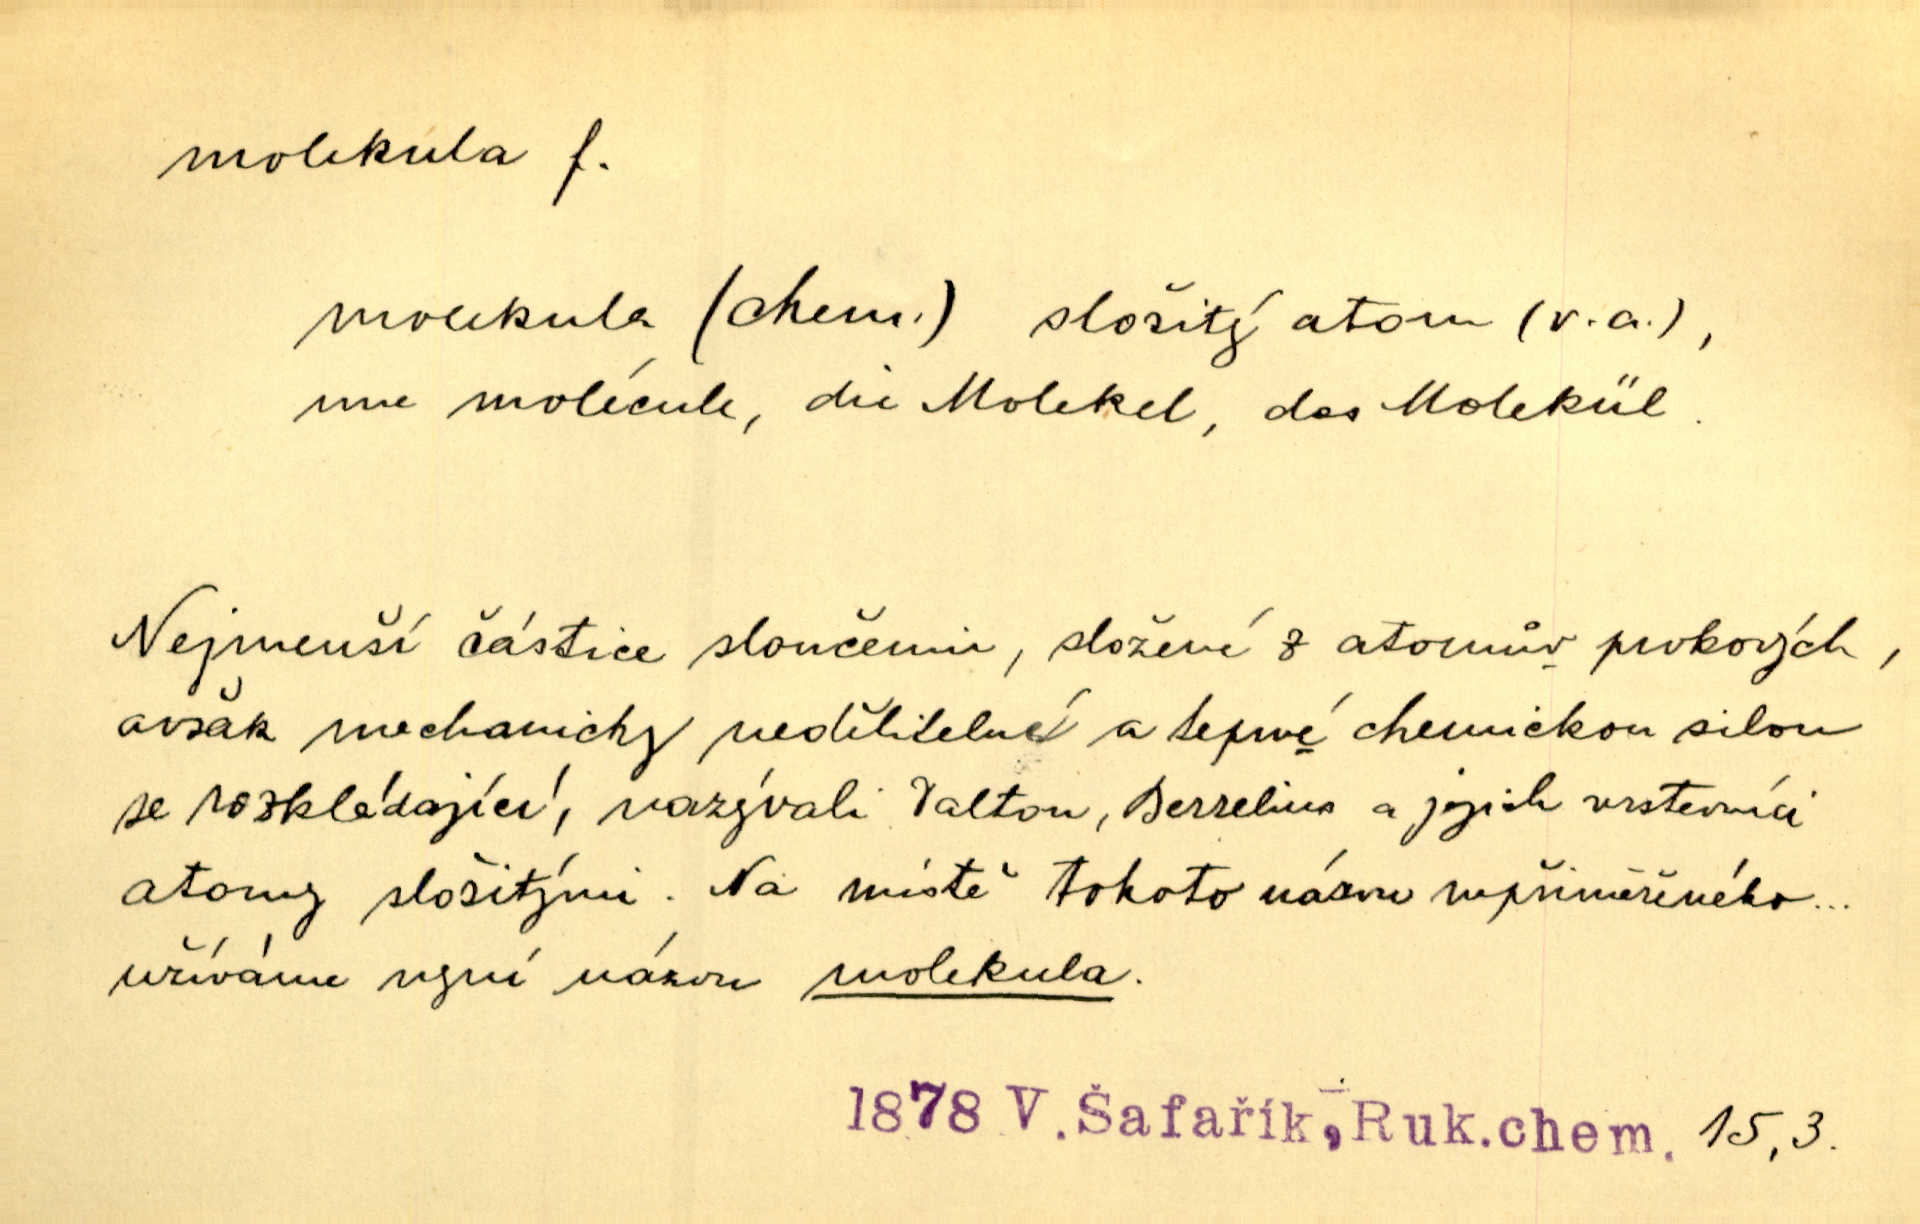 molekula f.
molekula (chem.) složitý atom (v.a.),
une molécule, die Molekel, das Molekül.
Nejmenší částice sloučenin, složené z atomův prvkových,
avšak mechanicky nedělitelné a teprvé chemickou silou
se rozkládající, nazývali Dalton, Berzelius a jejich vrstevníci
atomy složitými. Na místě tohoto názvu nepřiměřeného...
užíváme nyní názvu molekula.
1878 V. Šafařík, Ruk.chem. 15,3.